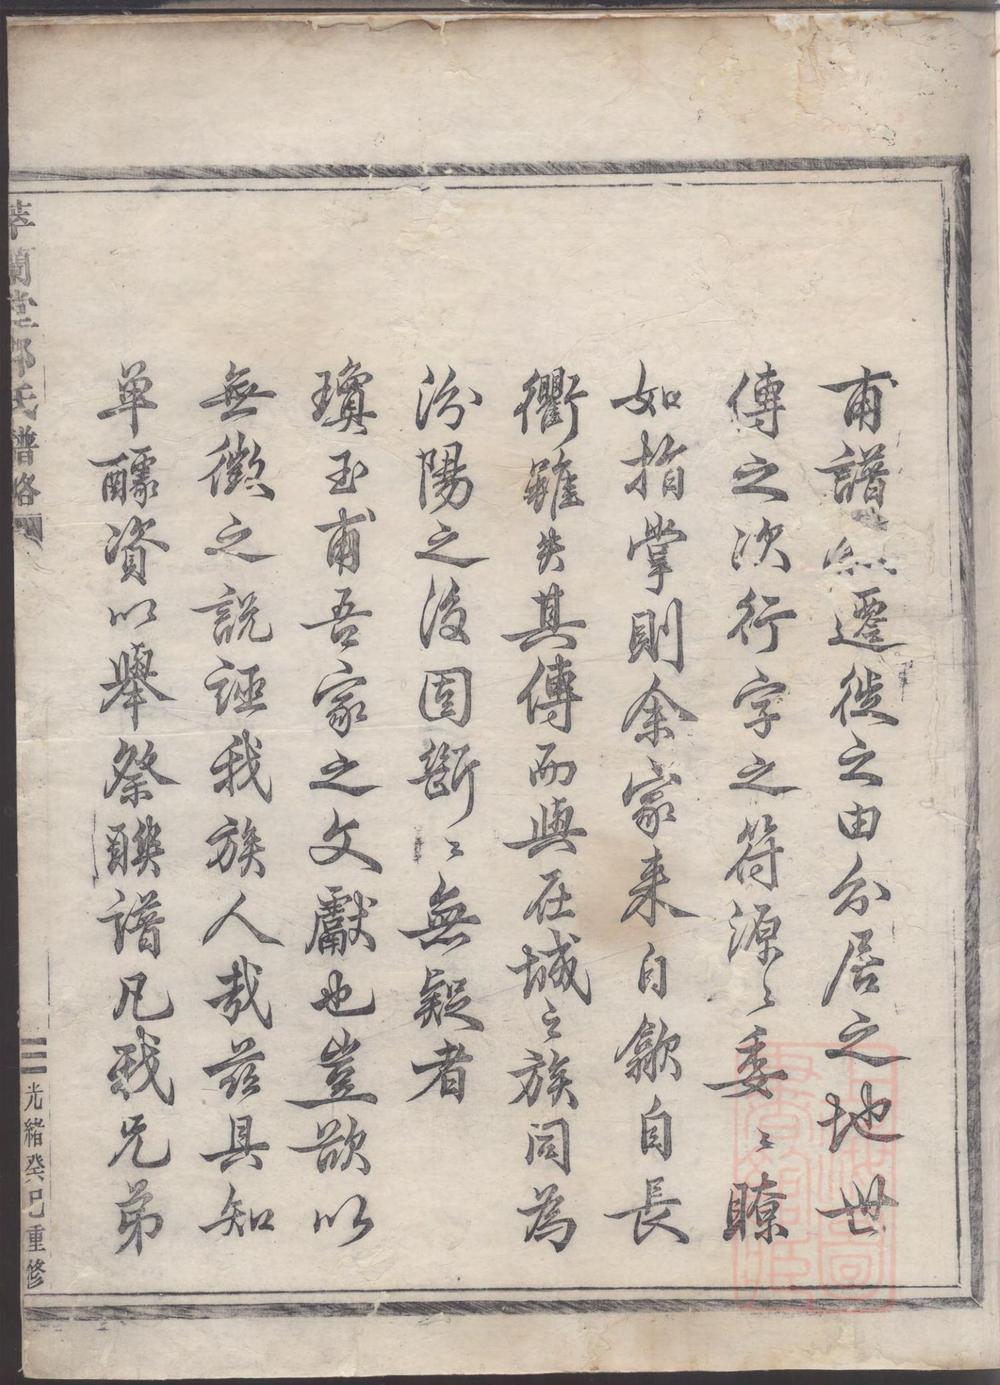 甫譜無遷徙之由分居之地世
傳之次行字之符源〻委〻瞭
如指掌則余家来自歙自長
衢雖失其傳而與在城之族同為
汾陽之後固斷〻無疑者
瓊玉甫吾家之文獻也豈欲以
無徵之說誣我族人哉茲具知
單醵資以舉祭聯譜凡我兄弟
萃蘭堂郭氏譜略
三
光緒癸巳重修